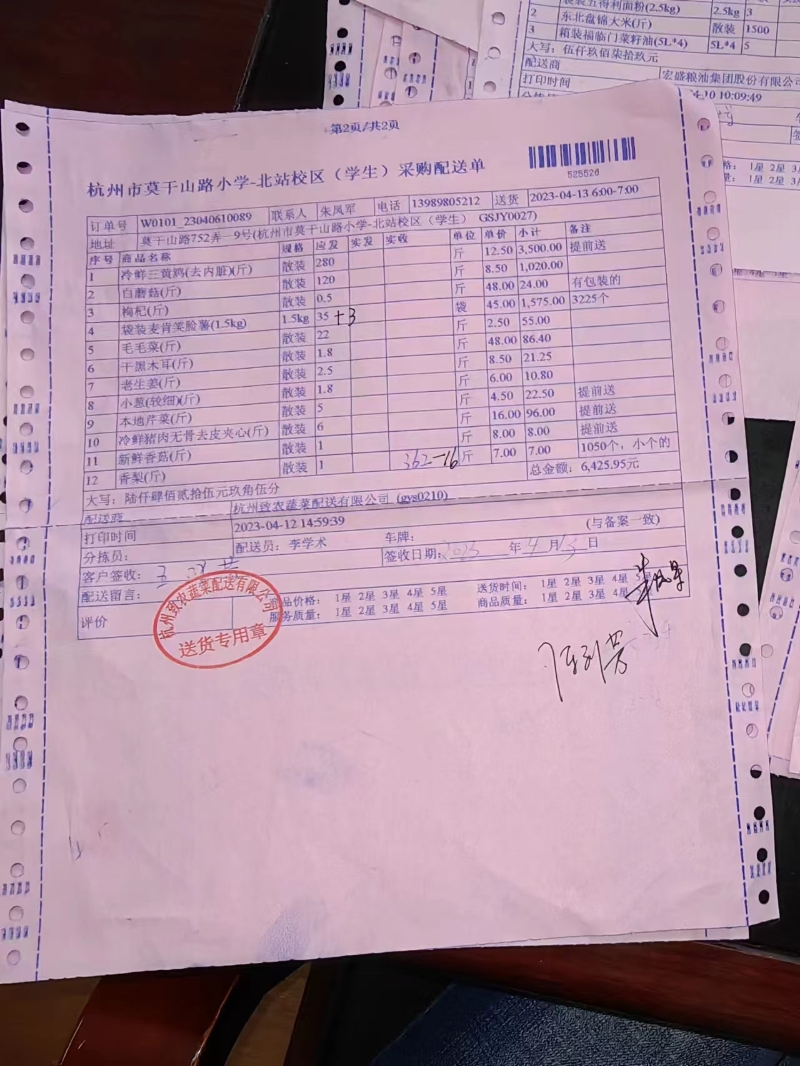 袋装五得利面粉(2.5kg) 2.5kg 3
2 东北盘锦大米(斤) 散装 1500
3 箱装福临门菜籽油(5L*4) 5L*4 5
大写：伍仟玖佰柒拾玖元
配送商 宏盛粮油集团股份有限公司
打印时间 10:09:49
第2页/共2页
杭州市莫干山路小学-北站校区（学生）采购配送单
525526
订单号 W0101_23040610089 联系人 朱凤军 电话 13989805212 送货 2023-04-13 6:00-7:00
地址 莫干山路752弄一9号(杭州市莫干山路小学-北站校区（学生） GSJY0027)
序号 商品名称 规格 应发 实发 实收 单位 单价 小计 备注
1 冷鲜三黄鸡(去内脏)(斤) 散装 280 斤 12.50 3,500.00 提前送
2 白蘑菇(斤) 散装 120 斤 8.50 1,020.00
3 枸杞(斤) 散装 0.5 斤 48.00 24.00 有包装的
4 袋装麦肯笑脸薯(1.5kg) 1.5kg 35 +3 袋 45.00 1,575.00 3225个
5 毛毛菜(斤) 散装 22 斤 2.50 55.00
6 干黑木耳(斤) 散装 1.8 斤 48.00 86.40
7 老生姜(斤) 散装 2.5 斤 8.50 21.25
8 小葱(较细)(斤) 散装 1.8 斤 6.00 10.80
9 本地芹菜(斤) 散装 5 斤 4.50 22.50 提前送
10 冷鲜猪肉无骨去皮夹心(斤) 散装 6 斤 16.00 96.00 提前送
11 新鲜香菇(斤) 散装 1 斤 8.00 8.00 提前送
12 香梨(斤) 散装 1 362-16 斤 7.00 7.00 1050个，小个的
大写：陆仟肆佰贰拾伍元玖角伍分 总金额：6,425.95元
配送商 杭州致农蔬菜配送有限公司 (gys0210)
打印时间 2023-04-12 14:59:39 (与备案一致)
分拣员： 配送员：李学术 车牌：
客户签收： 签收日期：2023 年 4 月 13 日
配送留言：
评价 商品价格： 1星 2星 3星 4星 5星 送货时间： 1星 2星 3星 4星 5星
服务质量： 1星 2星 3星 4星 5星 商品质量： 1星 2星 3星 4星
杭州致农蔬菜配送有限公司
送货专用章